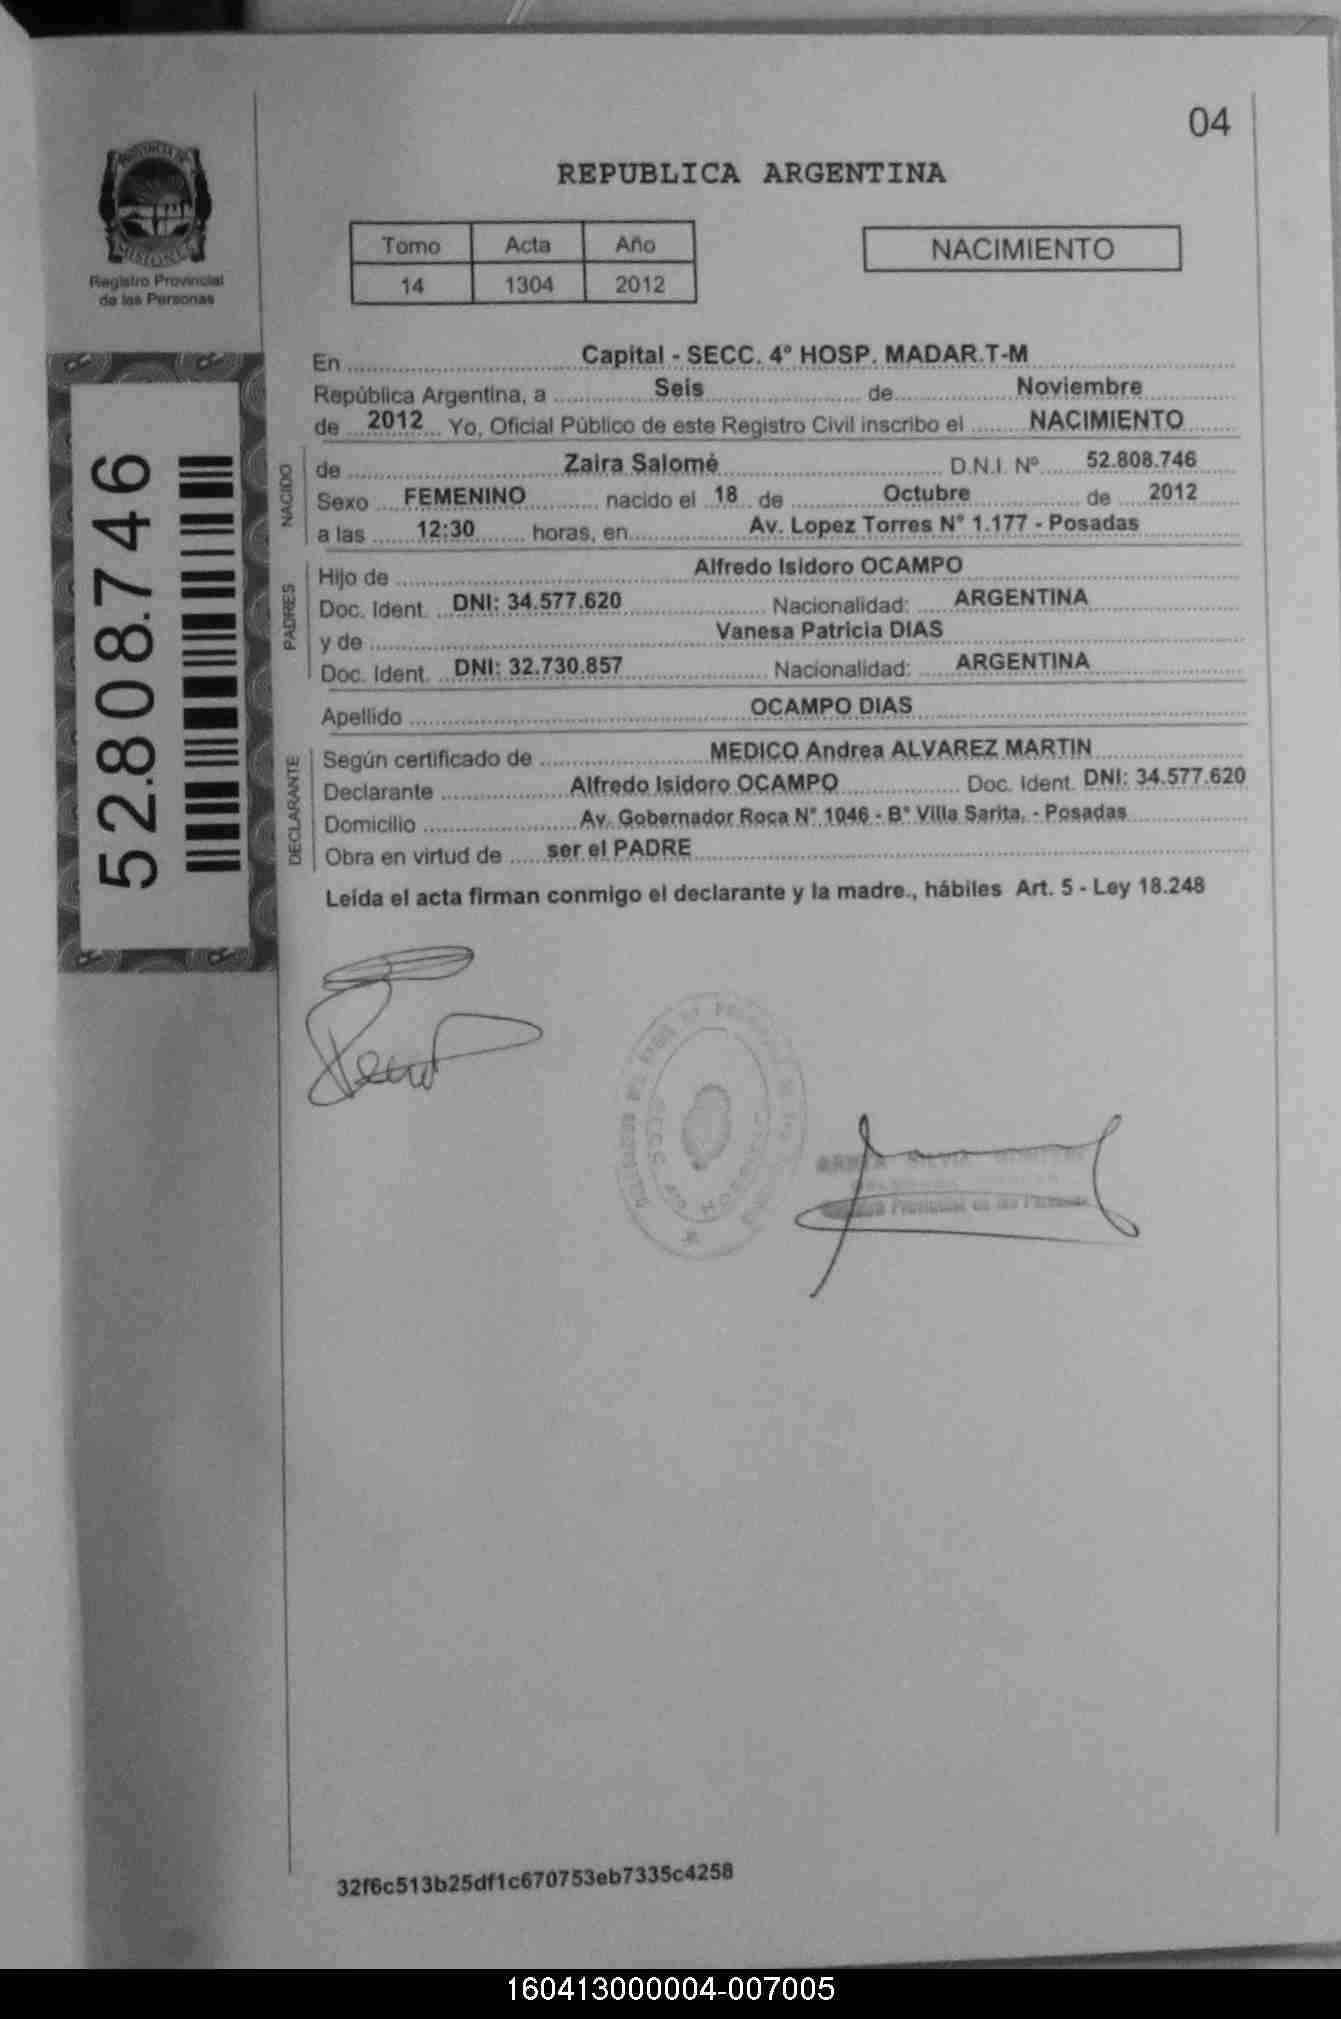 04
PROVINCIA DE
MISIONES
Registro Provincial
de las Personas
REPUBLICA ARGENTINA
Tomo Acta Año
14 1304 2012
NACIMIENTO
52.808.746
En Capital - SECC. 4° HOSP. MADAR.T-M
República Argentina, a Seis de Noviembre
de 2012 Yo, Oficial Público de este Registro Civil inscribo el NACIMIENTO
NACIDO
de Zaira Salomé D.N.I. Nº 52.808.746
Sexo FEMENINO nacido el 18 de Octubre de 2012
a las 12:30 horas, en Av. Lopez Torres N° 1.177 - Posadas
PADRES
Hijo de Alfredo Isidoro OCAMPO
Doc. Ident. DNI: 34.577.620 Nacionalidad: ARGENTINA
y de Vanesa Patricia DIAS
Doc. Ident. DNI: 32.730.857 Nacionalidad: ARGENTINA
Apellido OCAMPO DIAS
DECLARANTE
Según certificado de MEDICO Andrea ALVAREZ MARTIN
Declarante Alfredo Isidoro OCAMPO Doc. Ident. DNI: 34.577.620
Domicilio Av. Gobernador Roca N° 1046 - B° Villa Sarita, - Posadas
Obra en virtud de ser el PADRE
Leída el acta firman conmigo el declarante y la madre., hábiles Art. 5 - Ley 18.248
SILVIA
Provincial de las Personas
32f6c513b25df1c670753eb7335c4258
160413000004-007005